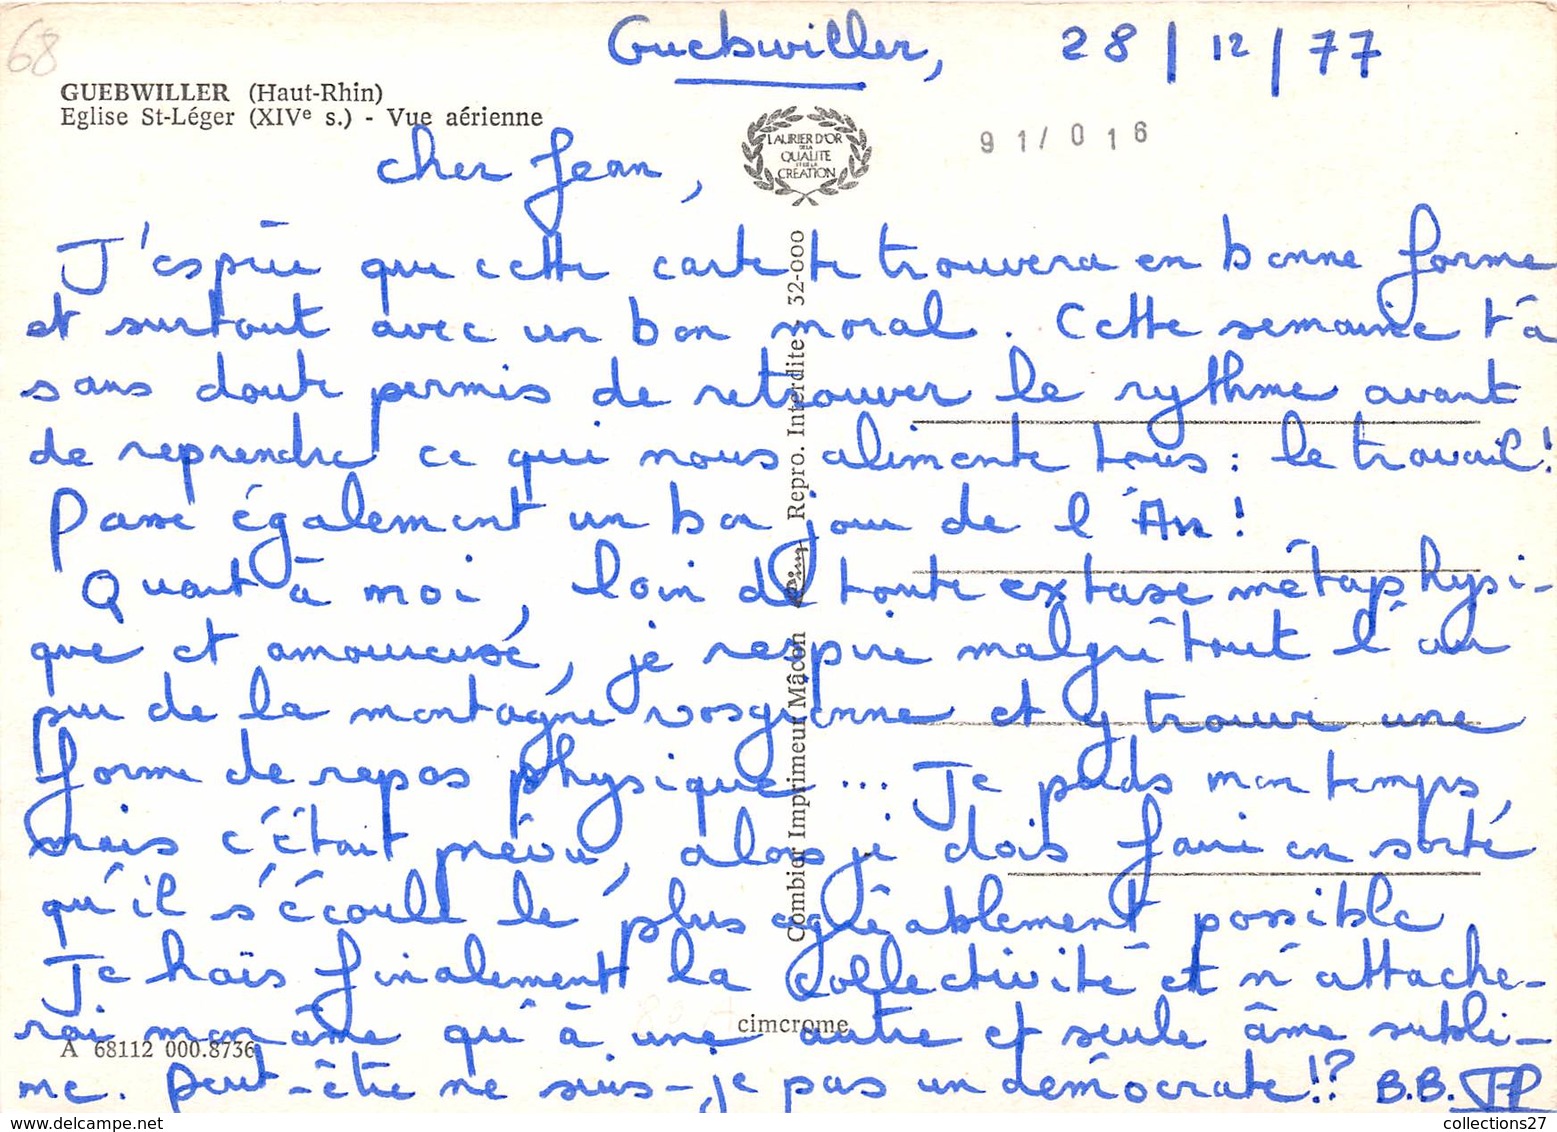 68
Guebwiller, 28/12/77
GUEBWILLER (Haut-Rhin)
Eglise St-Léger (XIVe s.) - Vue aérienne
LAURIER D'OR
DE LA
QUALITE
ET DE LA
CREATION
91/016
Cher Jean,
J'espère que cette carte te trouvera en bonne forme
et surtout avec un bon moral. Cette semaine t'a
sans doute permis de retrouver le rythme avant
de reprendre ce qui nous alimente tous : le travail!
Passe également un bon jour de l'An!
Quant à moi, loin de toute extase métaphysi-
que et amoureuse, je respire malgré tout l'air
pur de la montagne vosgienne et y trouve une
forme de repos physique... Je perds mon temps,
mais c'était prévu, alors je dois faire en sorte
qu'il s'écoule le plus agréablement possible
Je hais finalement la collectivité et n'attache-
rai mon âme qu'à une autre et seule âme subli-
me. Peut-être ne suis-je pas un démocrate!? B.B. JP
Combier Imprimeur Mâcon cim Repro. Interdite 32-000
cimcrome
A 68112 000.8736
www.delcampe.net
collections27